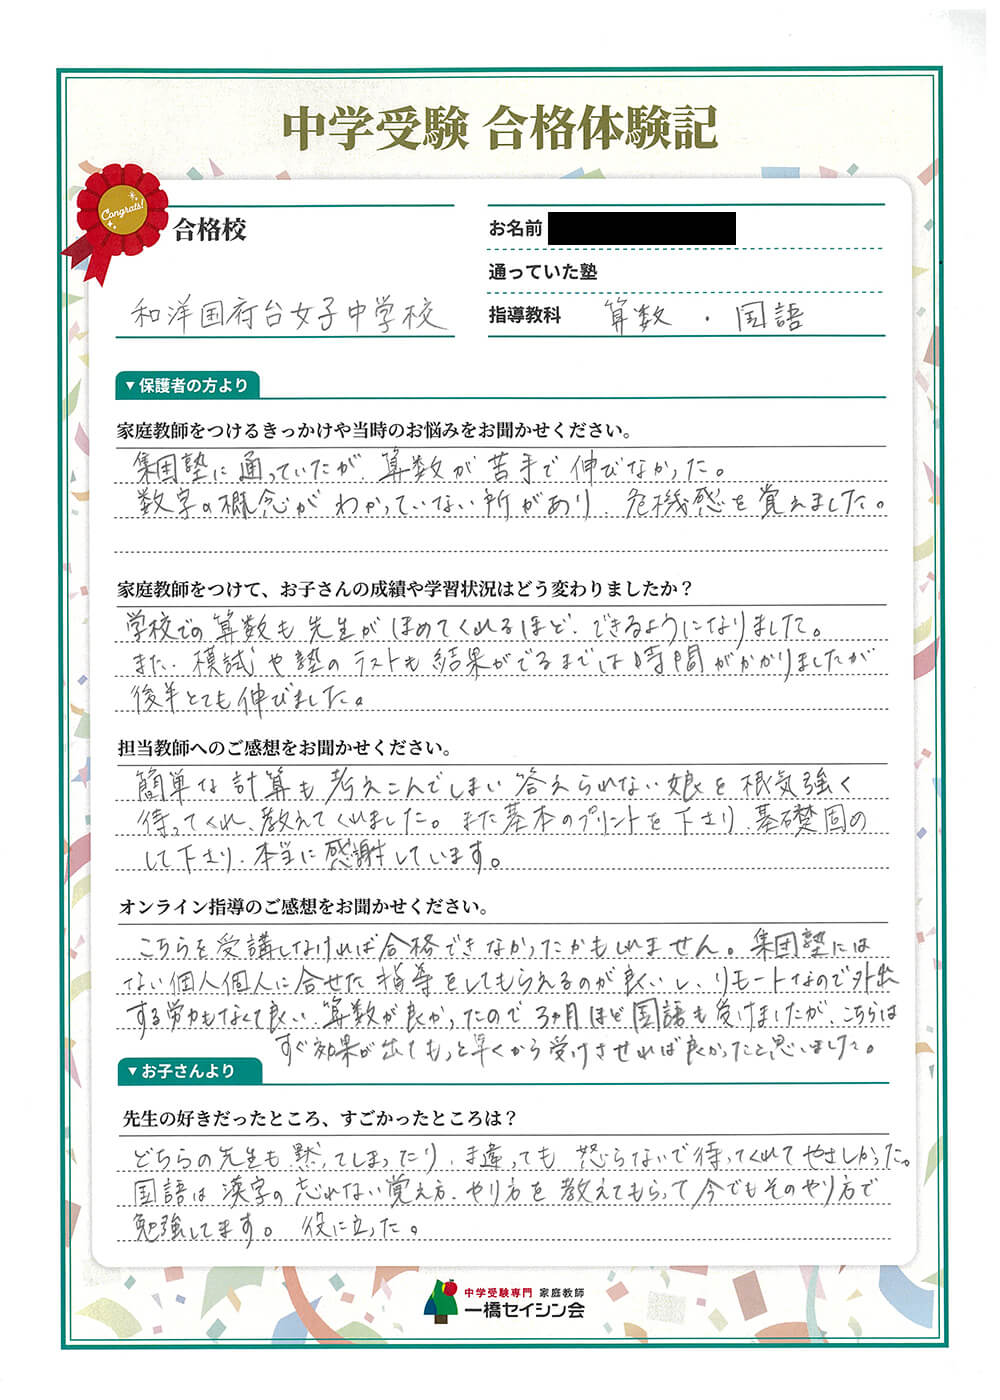 中学受験 合格体験記
Congrats!
合格校
和洋国府台女子中学校
お名前
通っていた塾
指導教科 算数 ・ 国語
▼保護者の方より
家庭教師をつけるきっかけや当時のお悩みをお聞かせください。
集団塾に通っていたが、算数が苦手で伸びなかった。
数字の概念がわかっていない所があり、危機感を覚えました。
家庭教師をつけて、お子さんの成績や学習状況はどう変わりましたか？
学校での算数も先生がほめてくれるほど、できるようになりました。
また、模試や塾のテストも結果がでるまでは時間がかかりましたが
後半とても伸びました。
担当教師へのご感想をお聞かせください。
簡単な計算も考えこんでしまい答えられない娘を根気強く
待ってくれ、教えてくれました。また基本のプリントを下さり、基礎固め
して下さり、本当に感謝しています。
オンライン指導のご感想をお聞かせください。
こちらを受講しなければ合格できなかったかもしれません。集団塾には
ない個人個人に合せた指導をしてもらえるのが良いし、リモートなので外出
する労力もなくて良い。算数が良かったので3ヶ月ほど国語も受けましたが、こちらは
すぐ効果が出てもっと早くから受けさせれば良かったと思いました。
▼お子さんより
先生の好きだったところ、すごかったところは？
どちらの先生も黙ってしまったり、ま違っても怒らないで待ってくれてやさしかった。
国語は漢字の忘れない覚え方、やり方を教えてもらって今でもそのやり方で
勉強してます。役に立った。
中学受験専門 家庭教師
一橋セイシン会